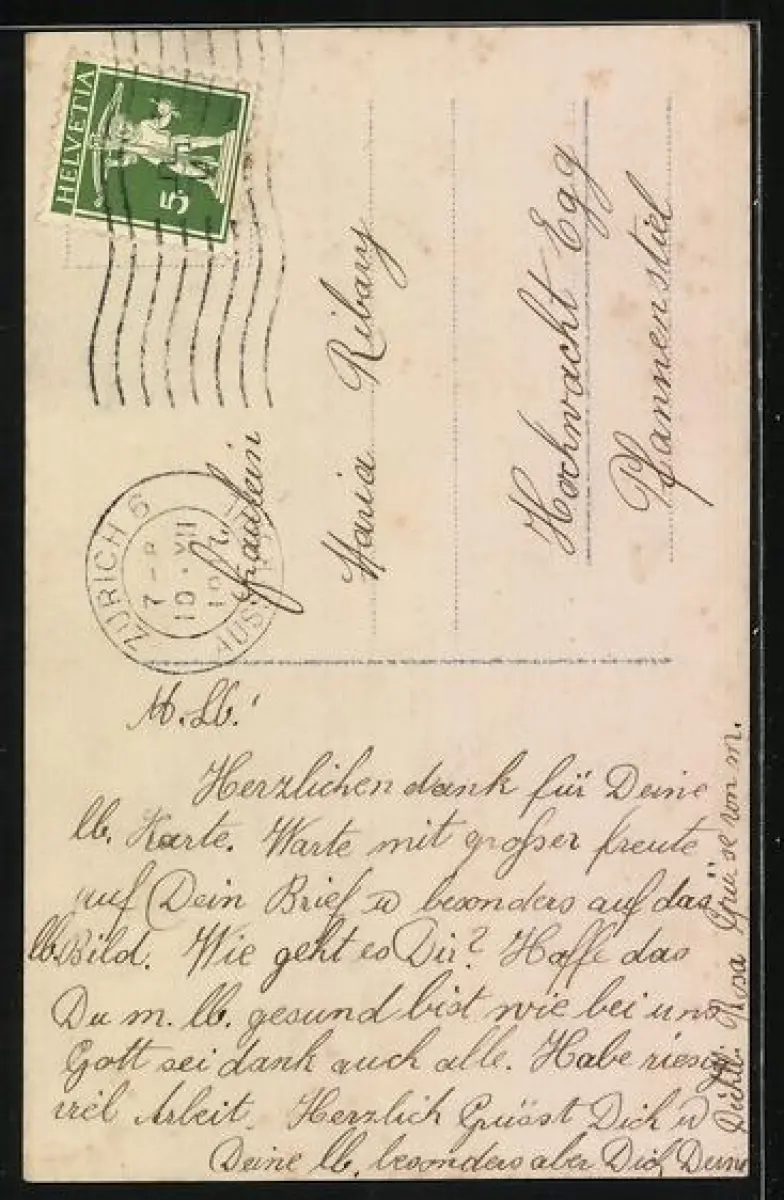 HELVETIA
5
ZÜRICH 6
7-8
10.VII
Fräulein
Maria Ribary
Hochwacht Egg
Pfannenstiel
M. Lb.!
Herzlichen dank für Deine
lb. Karte. Warte mit großer freute
auf Dein Brief u besonders auf das
lb. Bild. Wie geht es Dir? Hoffe das
Du m. lb. gesund bist wie bei uns
Gott sei dank auch alle. Habe riesig
viel Arbeit. Herzlich Grüsst Dich u
Deine lb. besonders aber Dich Deine
Rosa Grüsse von m.